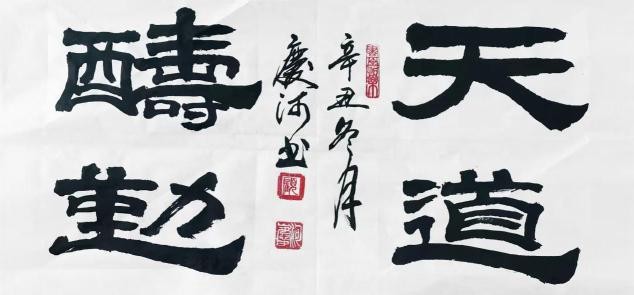 天道
辛丑冬月
慶河书
酬勤